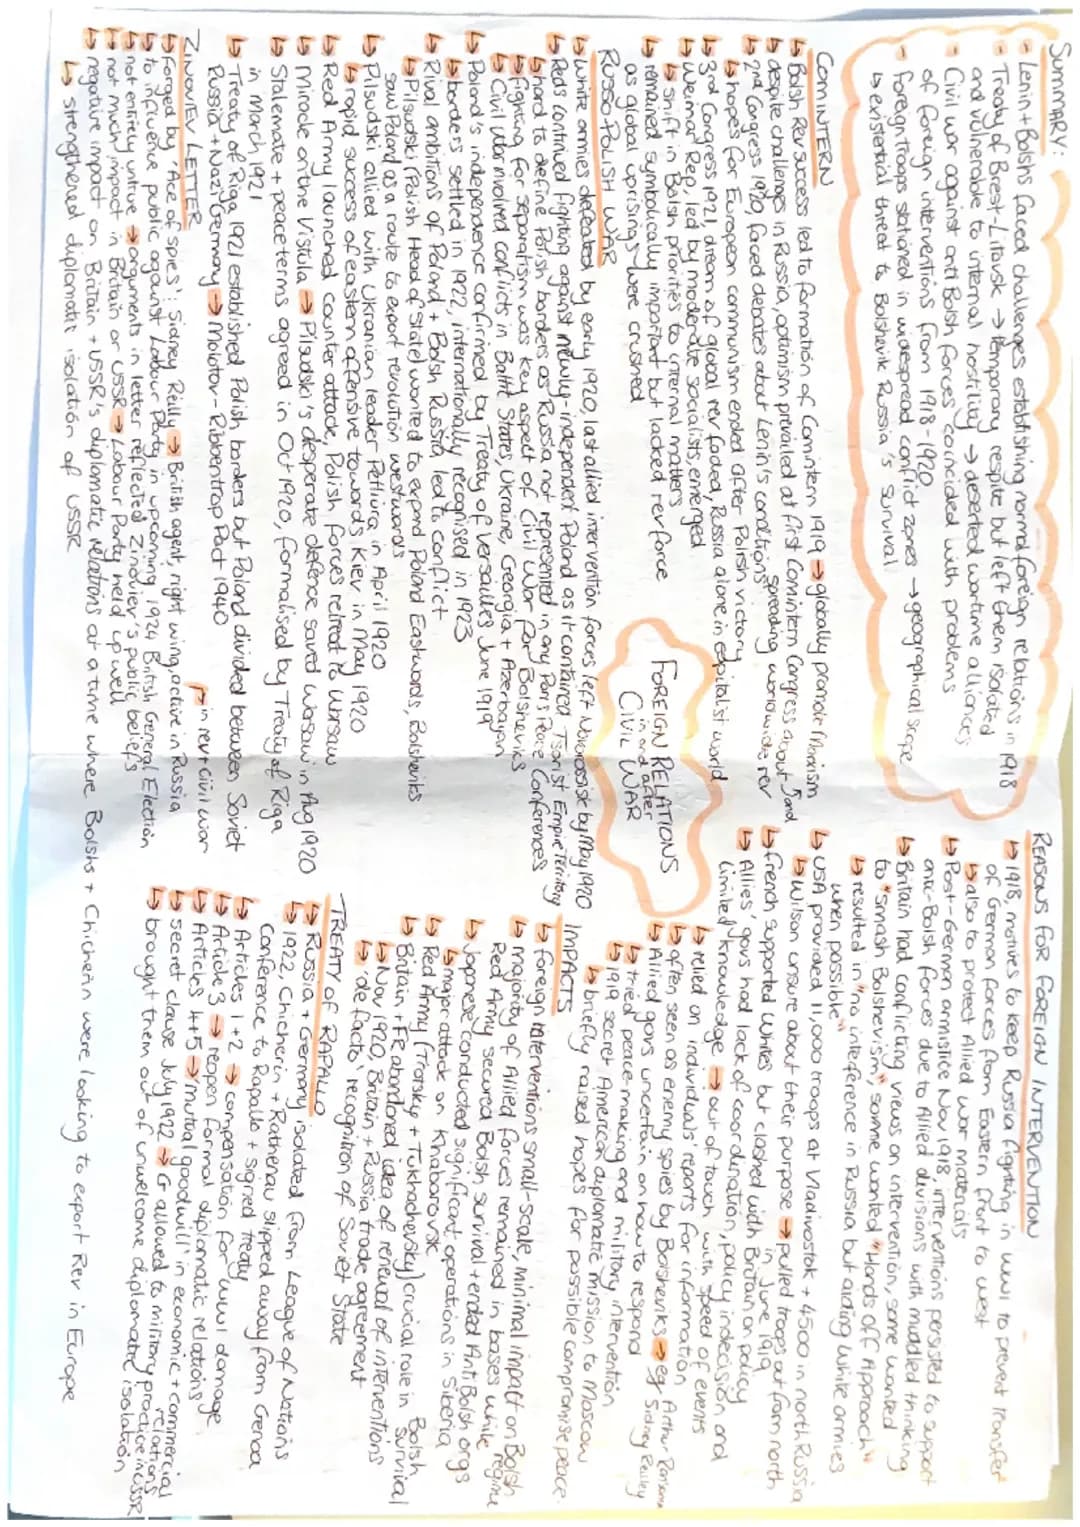 SUMMARY:
- Lenin + Bolshs faced challenges establishing normal foreign relations in 1918
- Treaty of Brest-Litovsk → temporary respite but left them isolated
and vulnerable to internal hostility → deserted wartime alliances
- Civil war against anti Bolsh forces coincided with problems
of foreign interventions from 1918-1920
- Foreign troops stationed in widespread conflict zones → geographical scope
↳ existential threat to Bolshevik Russia's survival
COMINTERN
↳ Bolsh Rev success led to formation of Comintern 1919 → globally promote Marxism
↳ despite challenges in Russia, optimism prevailed at first Comintern Congress about
spreading worldwide rev
↳ 2nd Congress 1920, faced debates about Lenin's conditions
↳ hopes for European communism ended after Polish victory
↳ 3rd Congress 1921, dream of global rev faded, Russia alone in capitalist world
↳ Weimar Rep, led by moderate socialists, emerged
↳ shift in Bolsh priorities to internal matters
↳ remained symbolically important but lacked rev force
as global uprisings were crushed
RUSSO-POLISH WAR
↳ White armies defeated by early 1920, last allied intervention forces left Novorossisk by May 1920
↳ Reds contrived fighting against newly-independent Poland as it contained Tsarist Empire Territory
↳ hard to define Polish borders as Russia not represented in any Paris Peace Conferences
↳ fighting for separatism was key aspect of Civil War for Bolsheviks
↳ Civil War involved conflicts in Baltic States, Ukraine, Georgia + Azerbayan
↳ Poland's independence confirmed by Treaty of Versailles June 1919
↳ borders settled in 1922, internationally recognised in 1923
↳ Rival ambitions of Poland + Bolsh Russia led to conflict
↳ Pilsudski (Polish Head of State) wanted to expand Poland Eastwards, Bolsheviks
saw Poland as a route to export revolution westwards
↳ Pilsudski allied with Ukranian leader Petliura in April 1920
↳ rapid success of eastern offensive towards Kiev in May 1920
↳ Red Army launched counter attack, Polish forces retreat to Warsaw
↳ Miracle on the Vistula → Pilsudski's desperate defence saved Warsaw in Aug 1920
↳ Stalemate + peace terms agreed in Oct 1920, formalised by Treaty of Riga
in March 1921
↳ Treaty of Riga 1921 established Polish borders but Poland divided between Soviet
Russia + Nazi Germany → Molotov-Ribbentrop Pact 1940
ZINOVIEV LETTER
↳ in rev + civil war
↳ Forged by 'Ace of spies': Sidney Reilly → British agent, right wing, active in Russia
↳ to influence public against Labour Party in upcoming 1924 British General Election
↳ not entirely untrue → arguments in letter reflected Zinoviev's public beliefs
↳ not much impact in Britain or USSR → Labour Party held up well
↳ negative impact on Britain + USSR's diplomatic relations at a time where Bolshs + Chicherin were looking to export Rev in Europe
↳ strengthened diplomatic isolation of USSR
FOREIGN RELATIONS
in and after
CIVIL WAR
REASONS FOR FOREIGN INTERVENTION
↳ 1918, motives to keep Russia fighting in WW1 to prevent transfer
of German forces from Eastern front to west
↳ also to protect Allied war materials
↳ Post-German armistice Nov 1918, interventions persisted to support
anti-Bolsh forces due to Allied divisions with muddled thinking
↳ Britain had conflicting views on intervention, some wanted
to "smash Bolshevism," some wanted "Hands off Approach"
↳ resulted in "no interference in Russia but aiding White armies
when possible"
↳ USA provided 11,000 troops at Vladivostok + 4500 in north Russia
↳ Wilson unsure about their purpose → pulled troops out from north
in June 1919
↳ French supported Whites but clashed with Britain on policy
↳ Allies' govs had lack of coordination, policy indecision and
limited knowledge → out of touch with speed of events
↳ relied on individuals' reports for information
↳ often seen as enemy spies by Bolsheviks → eg Arthur Ransome
Sidney Reilly
↳ Allied govs uncertain on how to respond
↳ tried peace-making and military intervention
↳ 1919 secret American diplomatic mission to Moscow
↳ briefly raised hopes for possible compromise peace
IMPACTS
↳ foreign interventions small-scale, minimal impact on Bolsh
regime
↳ majority of Allied forces remained in bases while
Red Army secured Bolsh survival + ended Anti Bolsh orgs
↳ Japanese conducted significant operations in Siberia
↳ major attack on Khabarovsk
↳ Red Army (Trotsky + Tukhachevsky) crucial role in Bolsh
survival
↳ Britain + FR abandoned idea of renewal of interventions
↳ Nov 1920, Britain + Russia trade agreement
↳ 'de facto' recognition of Soviet State
TREATY OF RAPALLO
↳ Russia + Germany isolated from League of Nations
↳ 1922, Chicherin + Rathenau slipped away from Genoa
Conference to Rapallo + signed treaty
↳ Articles 1 + 2 → compensation for WW1 damage
↳ Article 3 → reopen formal diplomatic relations
↳ Articles 4+5 → 'mutual goodwill' in economic + commercial
relations
↳ secret clause July 1922 → G allowed to military practice in USSR
↳ brought them out of unwelcome diplomatic isolation